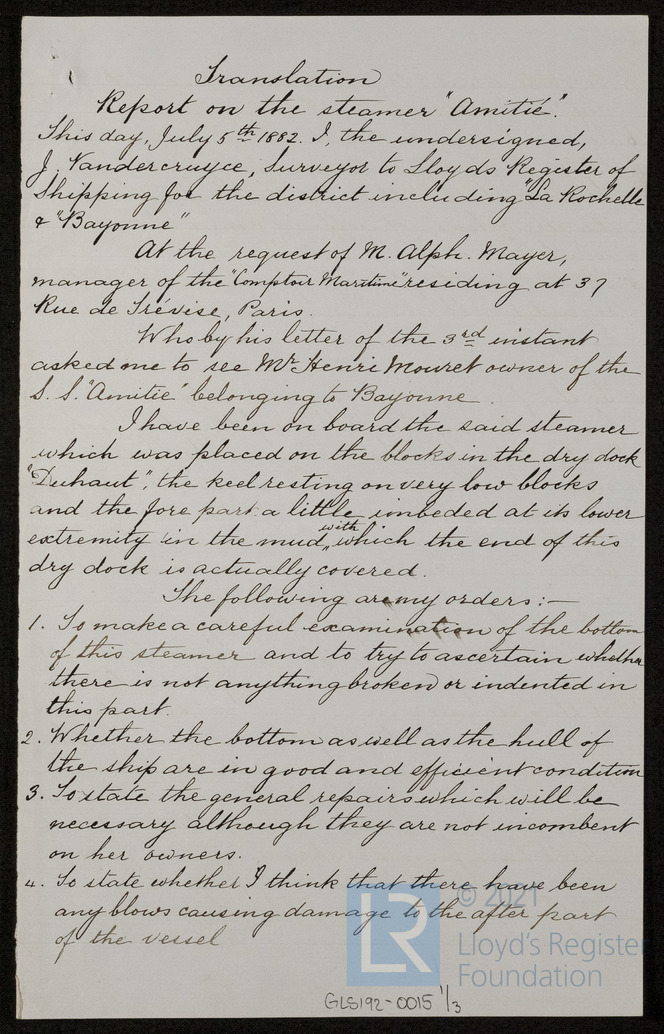 Translation
Report on the steamer "Amitié".
This day, July 5th 1882. I, the undersigned,
J. Vandercruyce, Surveyor to Lloyds Register of
Shipping for the district including "La Rochelle
& "Bayonne"
At the request of M. Alph. Mayer,
manager of the "Comptoir Maritime" residing at 37
Rue de Trévise, Paris.
Who by his letter of the 3rd instant
asked me to see Mr Henri Mouret owner of the
S. S. "Amitié" belonging to Bayonne.
I have been on board the said steamer
which was placed on the blocks in the dry dock
"Duhaut", the keel resting on very low blocks
and the fore part a little imbeded at its lower
extremity in the mud, with which the end of this
dry dock is actually covered.
The following are my orders:—
1. To make a careful examination of the bottom
of this steamer and to try to ascertain whether
there is not anything broken or indented in
this part.
2. Whether the bottom as well as the hull of
the ship are in good and efficient condition
3. To state the general repairs which will be
necessary although they are not incombent
on her owners.
4. To state whether I think that there have been
any blows causing damage to the after part
of the vessel
LR © 2021
Lloyd's Register
Foundation
GLS192-0015 1/3